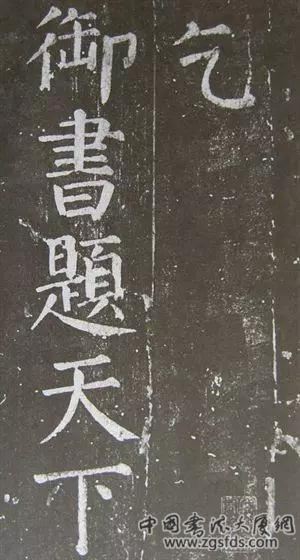 乞
御書題天下
中国书法大展網
www.zgsfds.com